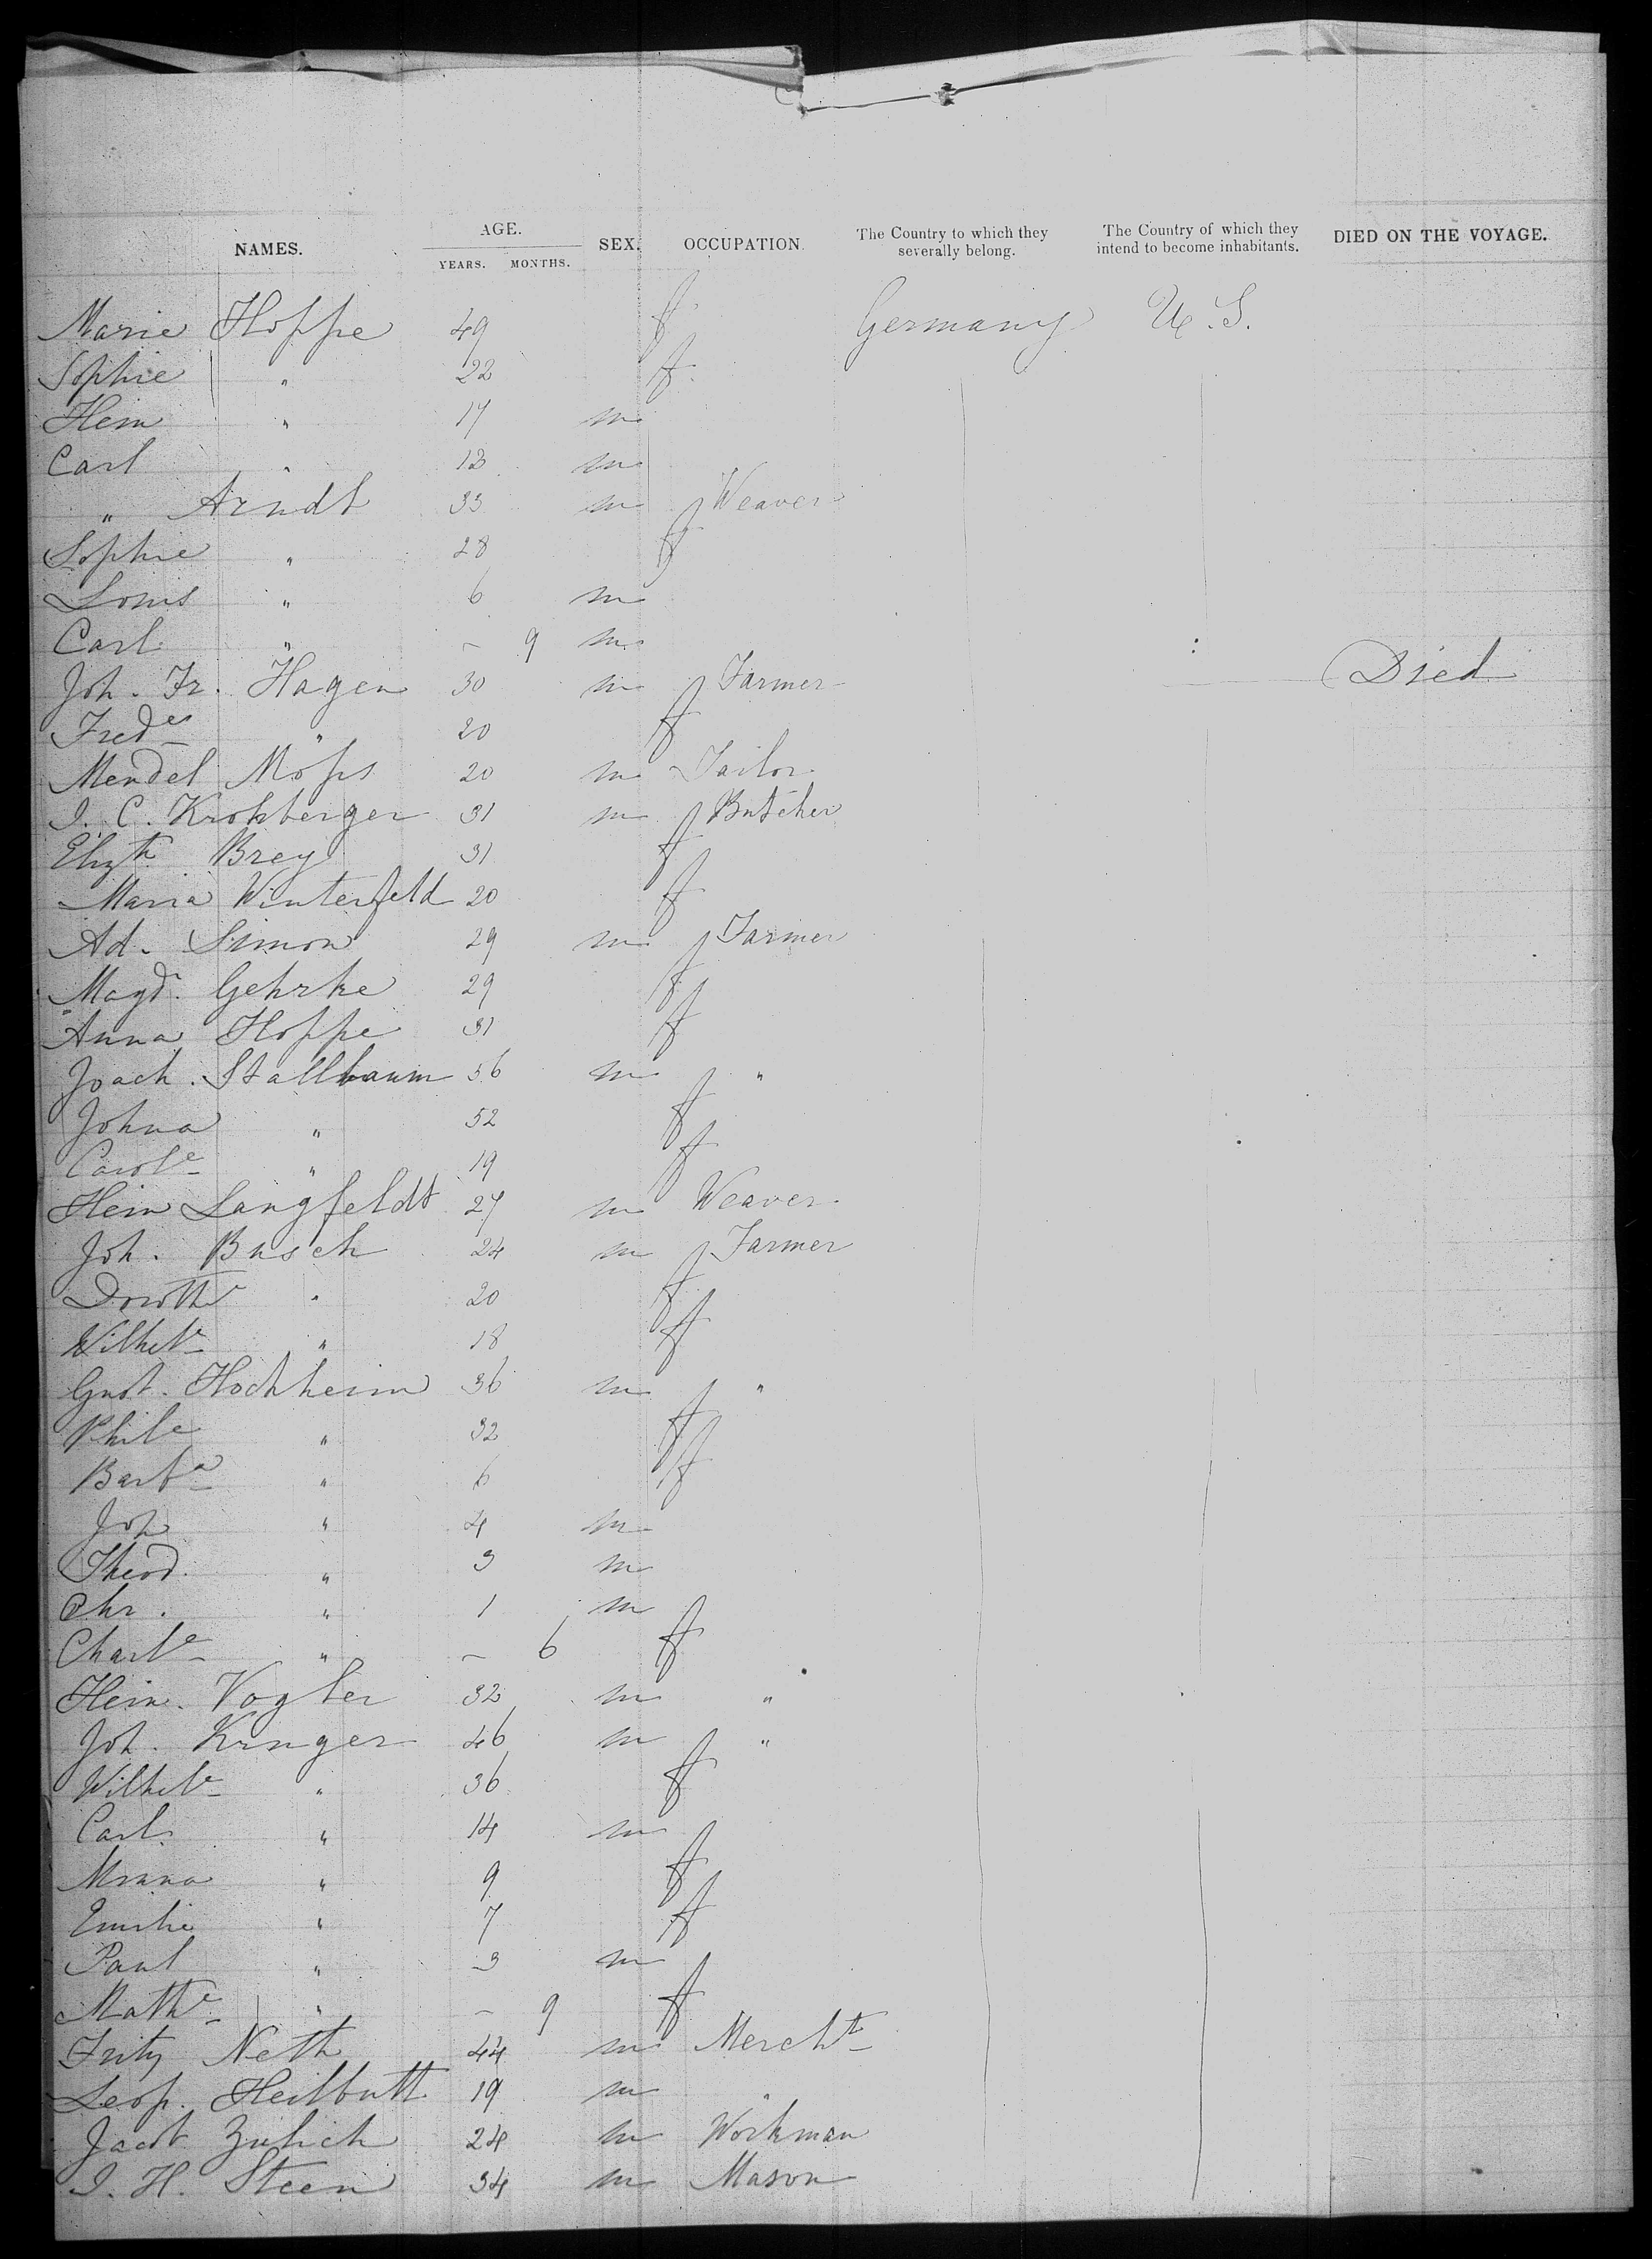 NAMES. AGE. YEARS. MONTHS. SEX. OCCUPATION. The Country to which they severally belong. The Country of which they intend to become inhabitants. DIED ON THE VOYAGE.
Marie Hoppe 49 f Germany U.S.
Sophie " 22 f
Hein " 17 m
Carl " 13 m
" Arndt 33 m Weaver
Sophie " 28 f
Louis " 6 m
Carl " – 9 m
Joh. Fr. Hagen 30 m Farmer Died
Fredes " 20 f
Mendel Moses 20 m Tailor
J. C. Krohberger 31 m Butcher
Elizth Brey 31 f
Maria Winterfeld 20 f
Ad. Simon 29 m Farmer
Magd. Gehrke 29 f
Anna Hoppe 31 f
Joach. Stallbaum 56 m "
Johna " 52 f
Carole " 19 f
Hein Langfeldt 27 m Weaver
Joh. Busch 24 m Farmer
Dorothe " 20 f
Wilhele " 18 f
Gust. Hochheim 36 m "
Phile " 32 f
Barba " 6 f
Joh " 4 m
Theod. " 3 m
Chr. " 1 m
Charle " – 6 f
Hein. Vogler 32 m "
Joh. Kruger 46 m "
Wilhele " 36 f
Carl " 14 m
Minna " 9 f
Emilie " 7 f
Paul " 3 m
Mathe " – 9 f
Fritz Neth 44 m Mercht
Leop. Heilbutt 19 m "
Jacob Zulich 24 m Workman
J. H. Steen 34 m Mason